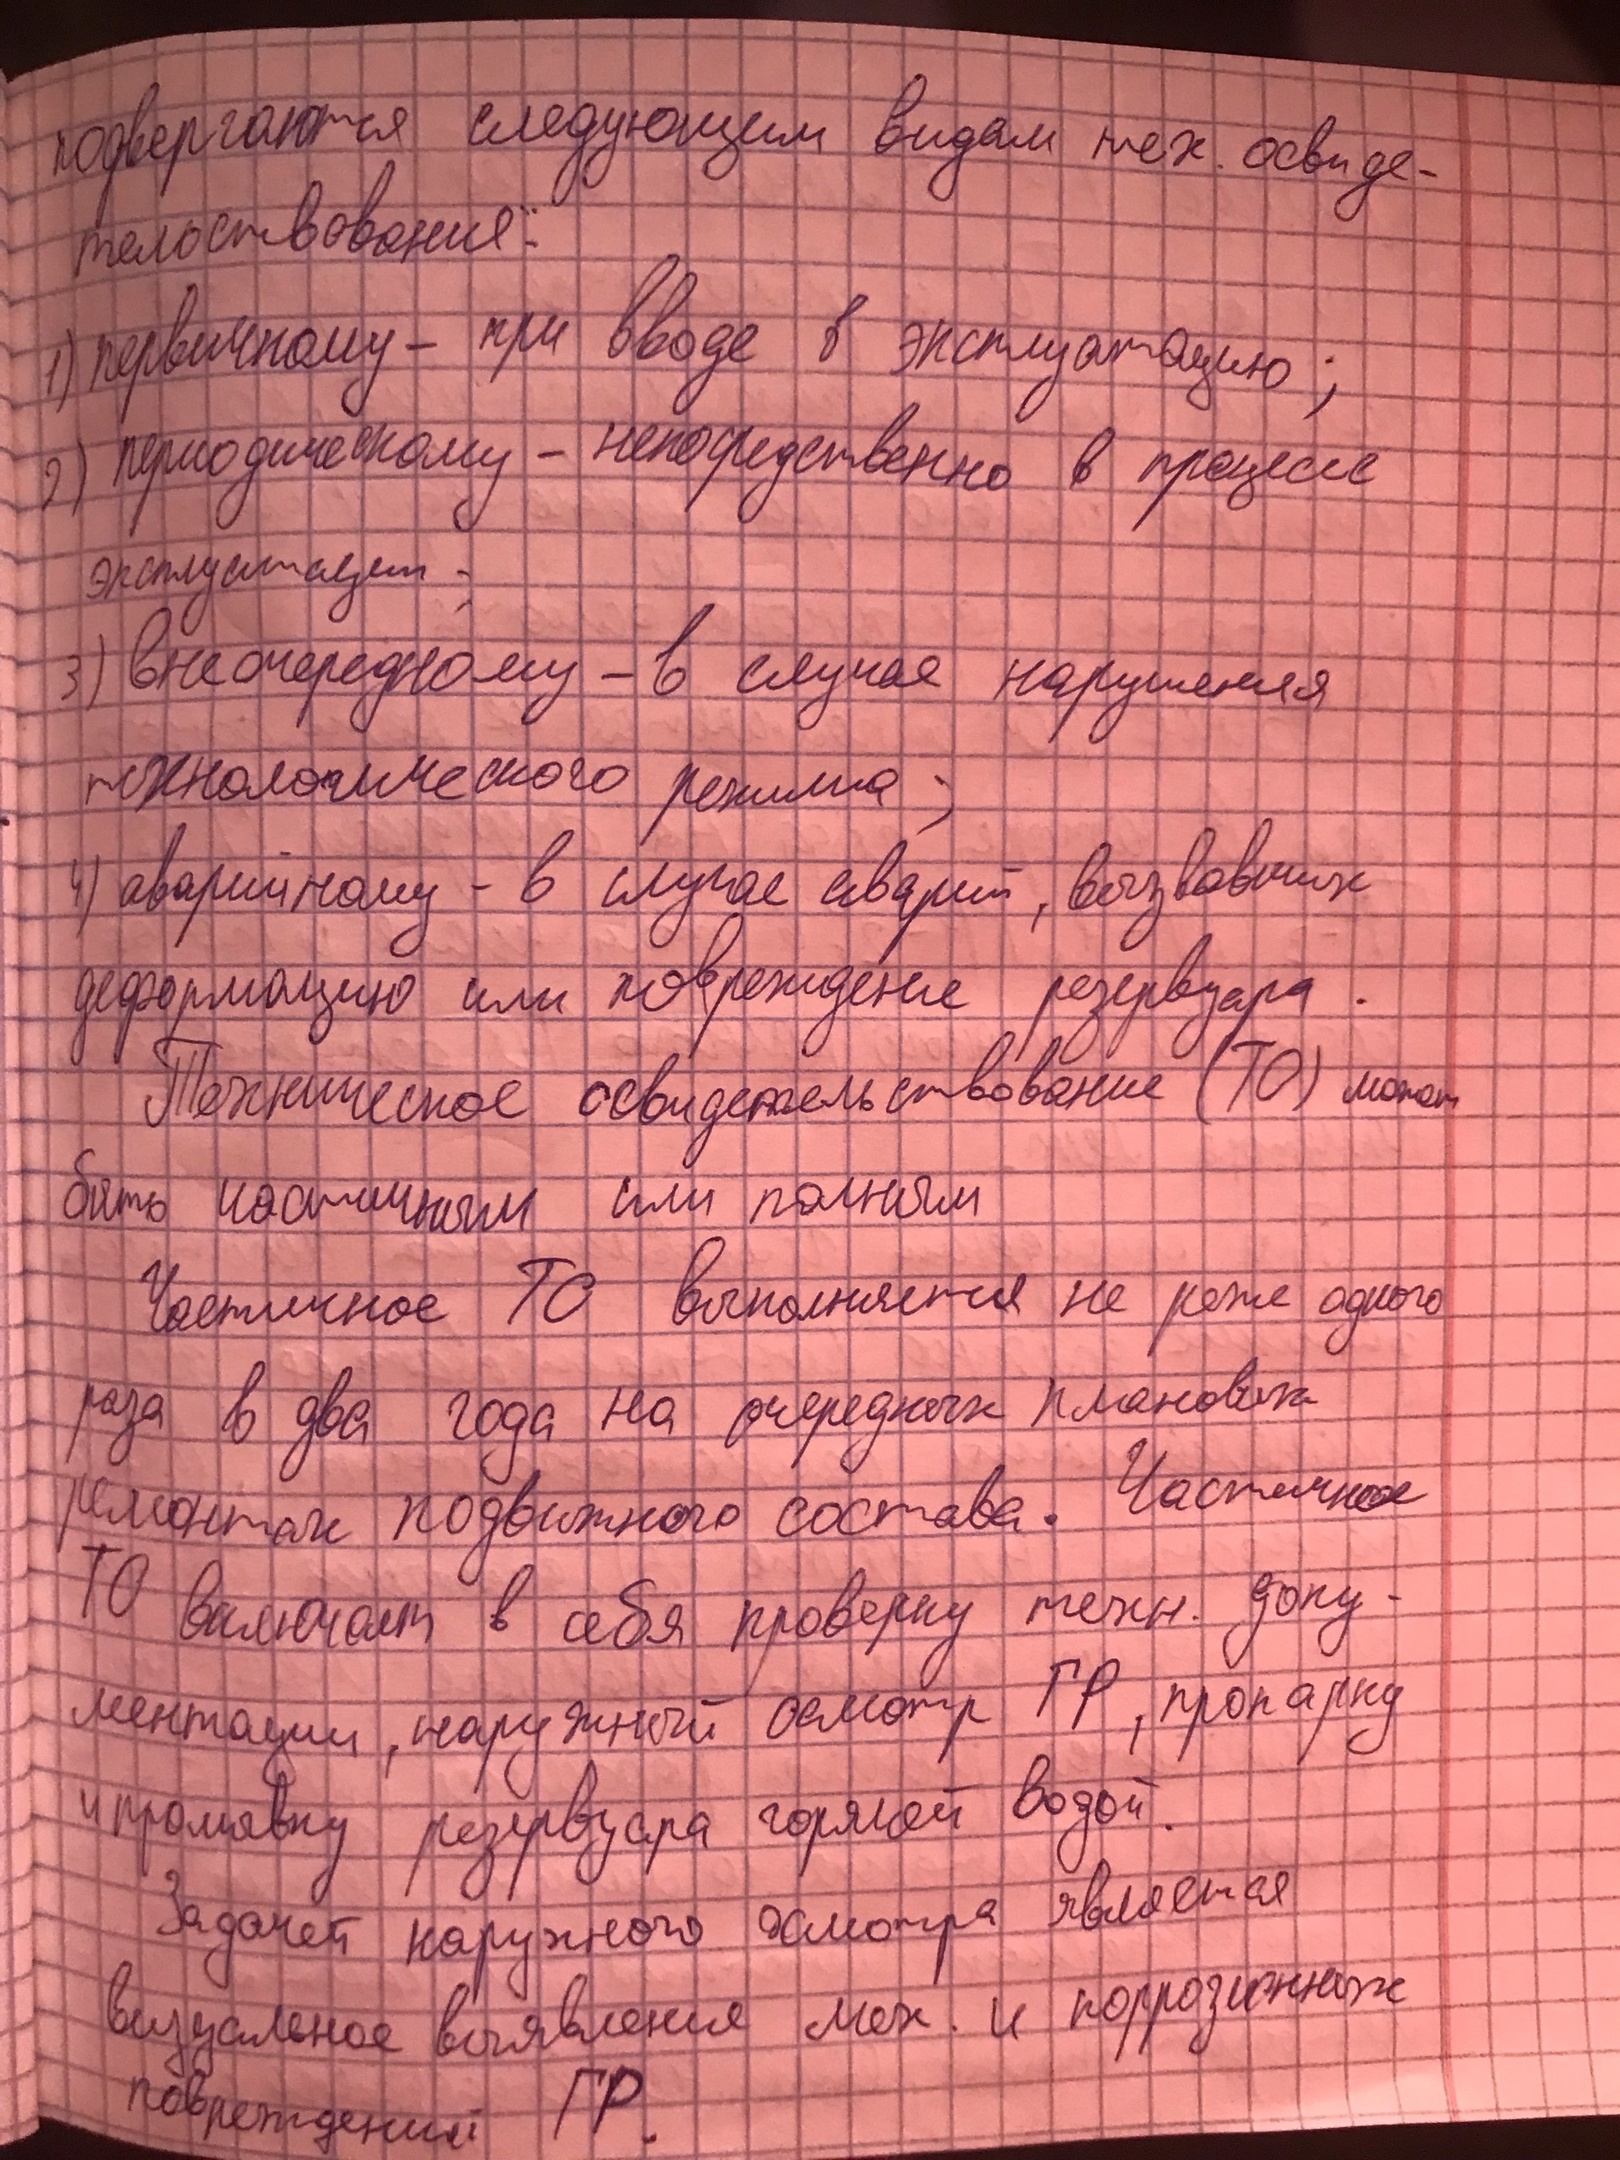 подвергаются следующим видам тех. освиде-
тельствования:
1) первичному - при вводе в эксплуатацию;
2) периодическому - непосредственно в процессе
эксплуатации;
3) внеочередному - в случае нарушения
технологического режима;
4) аварийному - в случае аварий, вызвавших
деформацию или повреждение резервуара.
Техническое освидетельствование (ТО) может
быть частичным или полным
Частичное ТО выполняется не реже одного
раза в два года на очередных плановых
ремонтах подвижного состава. Частичное
ТО включает в себя проверку техн. доку-
ментации, наружный осмотр ГР, пропарку
и промывку резервуара горячей водой.
Задачей наружного осмотра является
визуальное выявление мех. и коррозионных
повреждений ГР.